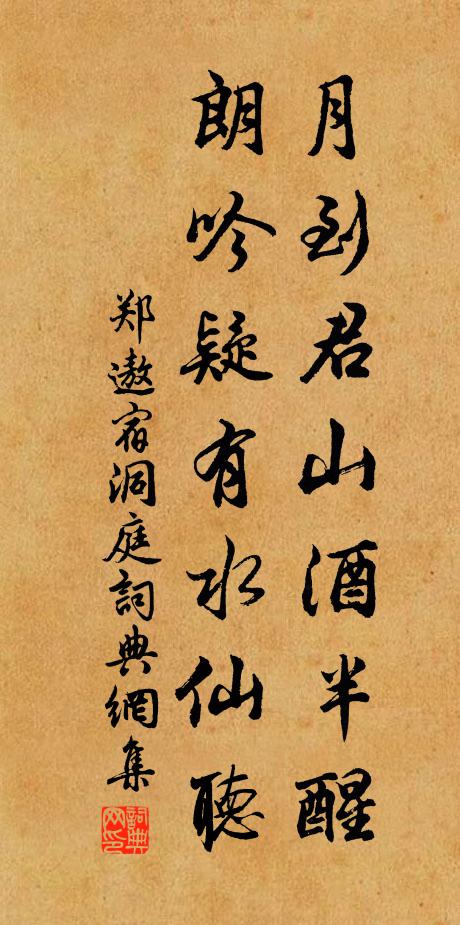 月到君山酒半醒
朗吟疑有水仙聽
郑遨宿洞庭詞典網集
詞典
网印